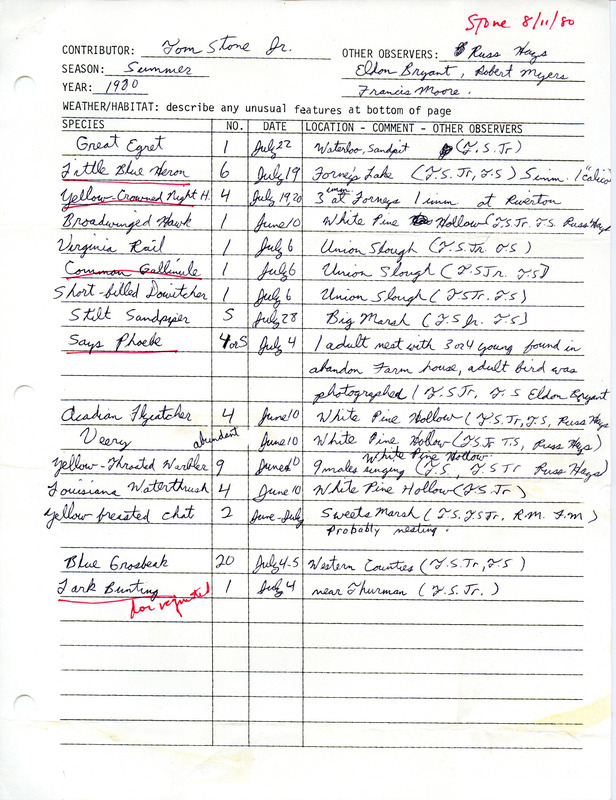 Stone 8/11/80
CONTRIBUTOR: Tom Stone Jr. OTHER OBSERVERS: Russ Hays
SEASON: Summer Eldon Bryant, Robert Myers
YEAR: 1980 Francis Moore.
WEATHER/HABITAT: describe any unusual features at bottom of page
SPECIES NO. DATE LOCATION - COMMENT - OTHER OBSERVERS
Great Egret 1 July 22 Waterloo, Sandpit (T.S.Jr)
Little Blue Heron 6 July 19 Forneys Lake (T.S.Jr, T.S) 5 imm. 1 "calico
Yellow-Crowned Night H. 4 July 19,20 3 imm at Forneys 1 imm at Riverton
Broadwinged Hawk 1 June 10 White Pine Hollow (T.S.Jr. T.S. Russ Hays
Virginia Rail 1 July 6 Union Slough (T.S.Jr T.S)
Common Gallinule 1 July 6 Union Slough (T.S Jr. T.S)
Short-billed Dowitcher 1 July 6 Union Slough (T.S Jr. T.S)
Stilt Sandpiper 5 July 28 Big Marsh (T.S Jr. T.S)
Says Phoebe 4 or 5 July 4 1 adult nest with 3 or 4 young found in
abandon Farm house, adult bird was
photographed (T.S Jr, T.S Eldon Bryant
Acadian Flycatcher 4 June 10 White Pine Hollow (T.S.Jr, T.S, Russ Hays
Veery abundant June 10 White Pine Hollow (T.S.Jr T.S, Russ Hays)
White Pine Hollow
Yellow-Throated Warbler 9 June 10 9 males singing (T.S, T.S Jr Russ Hays)
Louisiana Waterthrush 4 June 10 White Pine Hollow (T.S.Jr)
Yellow breasted chat 2 June-July Sweets Marsh (T.S. T.S Jr. R.M. F.M)
Probably nesting.
Blue Grosbeak 20 July 4-5 Western Counties (T.S.Jr, T.S)
Lark Bunting 1 July 4 near Thurman (T.S.Jr.)